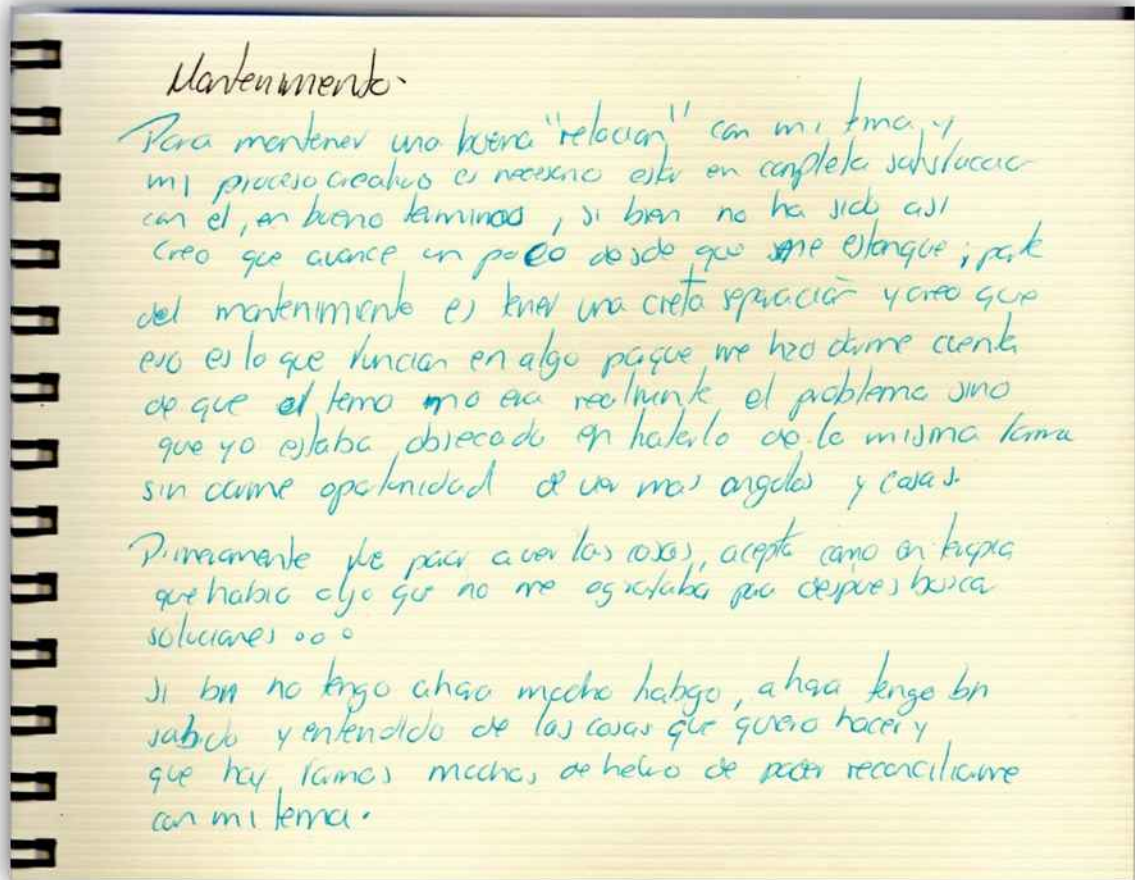 Mantenimiento.
Para mantener una buena "relacian" con mi tma y
mi proceso creativo es necesario estar en completa satisfaccio
con el, en bueno terminos, si bien no ha sido asi
creo que avance un poco desde que me estanque; parte
del mantenimiento es tener una creta separaciòn y creo que
eso es lo que funcian en algo porque me hzo darme cuenta
de que el tema no era realmente el problema sino
que yo estaba obsecado en haterlo de la misma forma
sin darme opotunidad de ver mas angulos y casas.
Primeramente paar a ver las cosas, acepta como en
que habia algo que no me agradaba para despues busca
soluciones...
si bn no tengo ahao mucho , ahaa tengo bn
sabido y entendido de las cosas que quiero hacer y
que hay famas muchas, de hecho de poder reconciliarme
con mi tema.